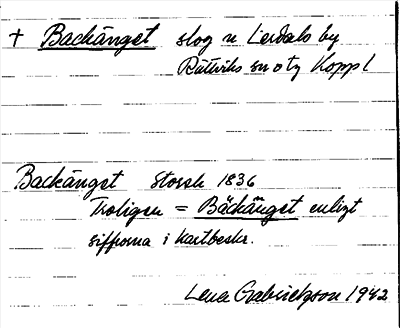 † Backänget slog u Lerdals by
Rättviks sn o tg Koppl
Backänget Storsk 1836
Troligen = Bäckänget enligt
siffrorna i kartbeskr.
Lena Gabrielsson 1942